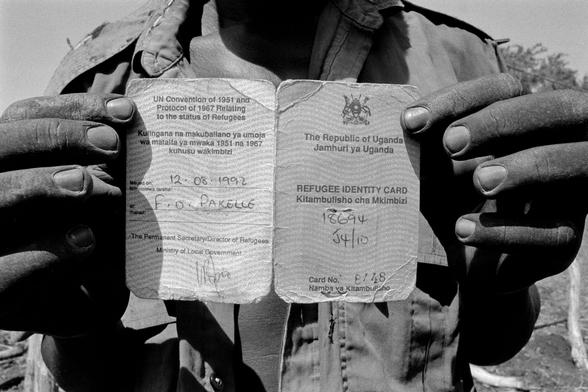 UN Convention of 1951 and
Protocol of 1967 Relating
to the status of Refugees
Kulingana na makubaliano ya umoja
wa mataifa ya mwaka 1951 na 1967
kuhusu wakimbizi
Issued on:
12.08.1992
at
F.O. PAKELLE
The Permanent Secretary/Director of Refugees
Ministry of Local Government
The Republic of Uganda
Jamhuri ya Uganda
REFUGEE IDENTITY CARD
Kitambulisho cha Mkimbizi
18694
J4/10
Card No.
Namba ya Kitambulisho